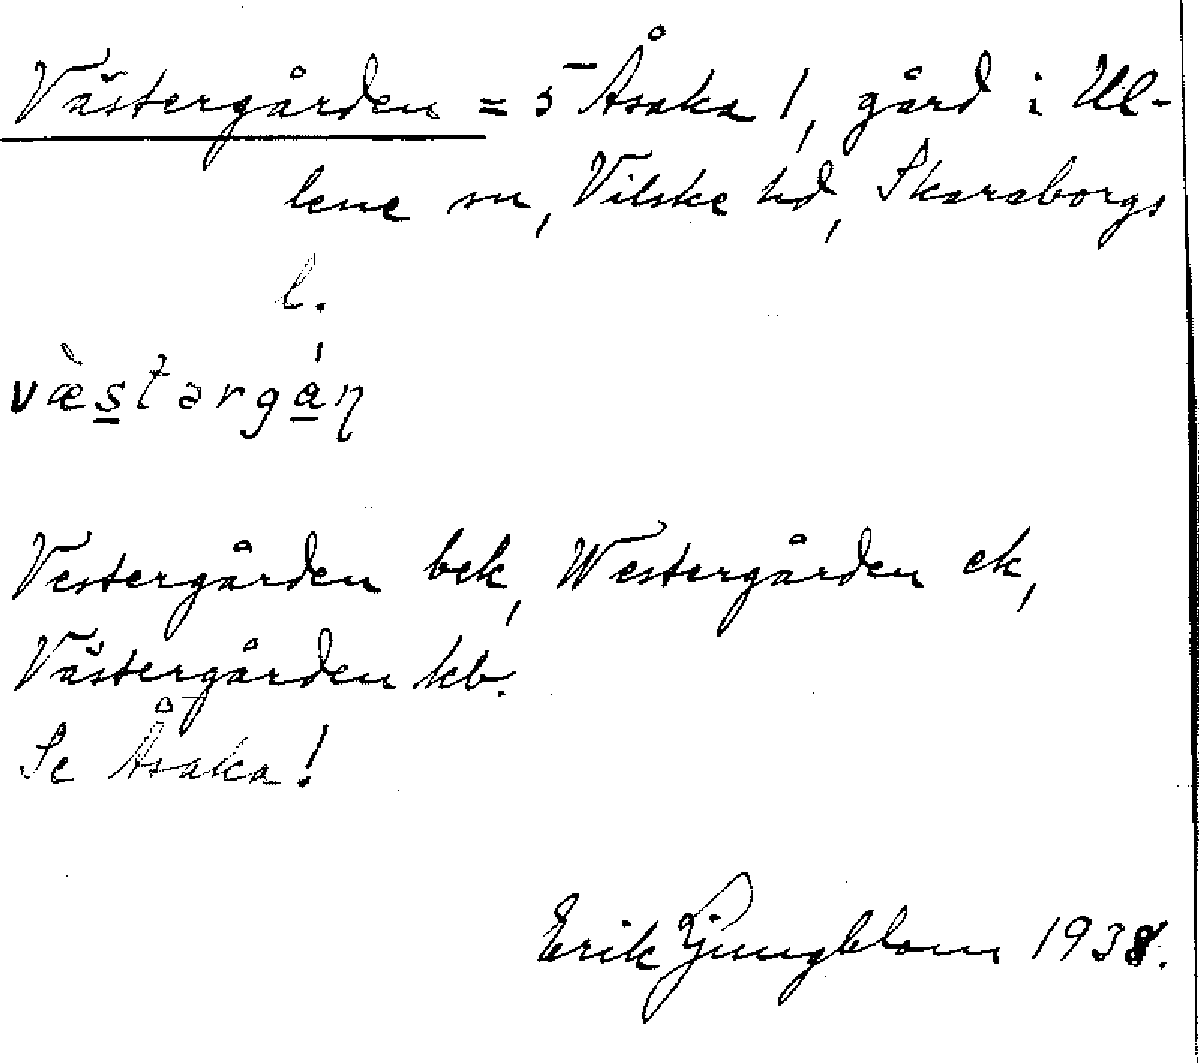 Västergården = 5 Åsaka 1, gård i Ul-
lene sn, Vilske hd, Skaraborgs
l.
væ̀stargán
Vestergården bek, Westergården ek,
Västergården kb.
Se Åsaka!
Erik Ljungblom 1938.